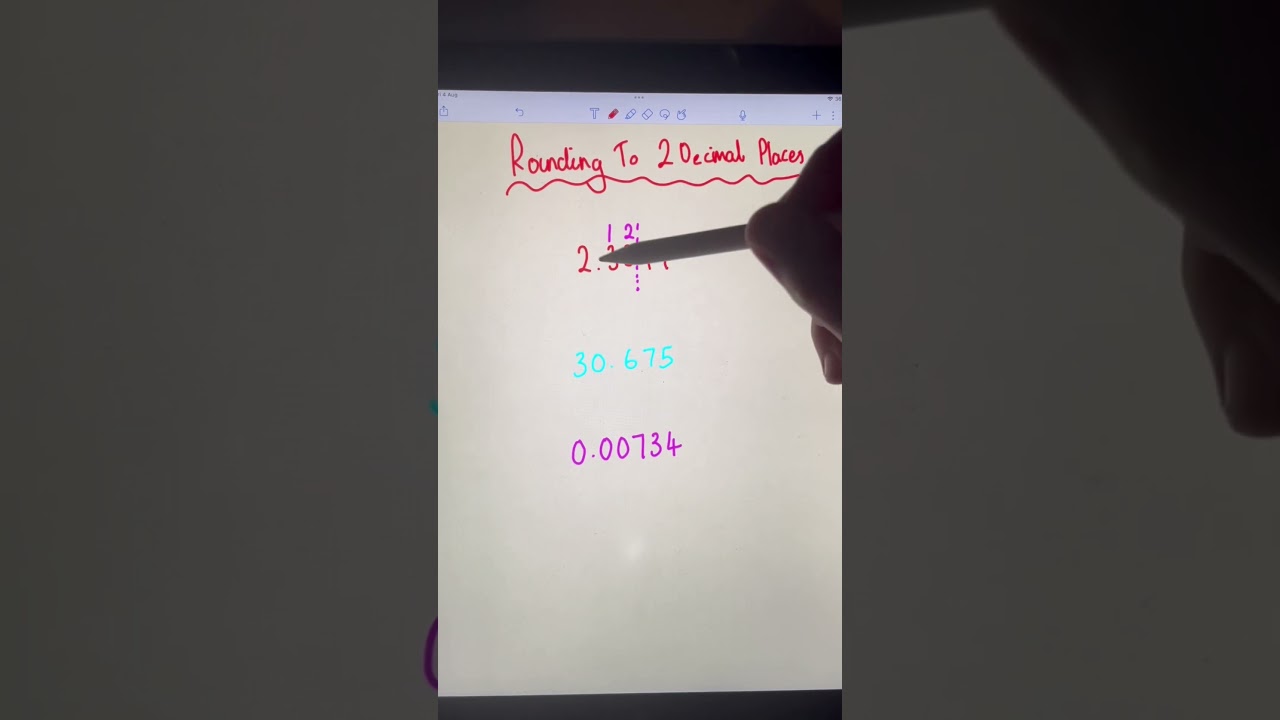 Rounding To 2 Decimal Places
1 2
2.3
30.675
0.00734